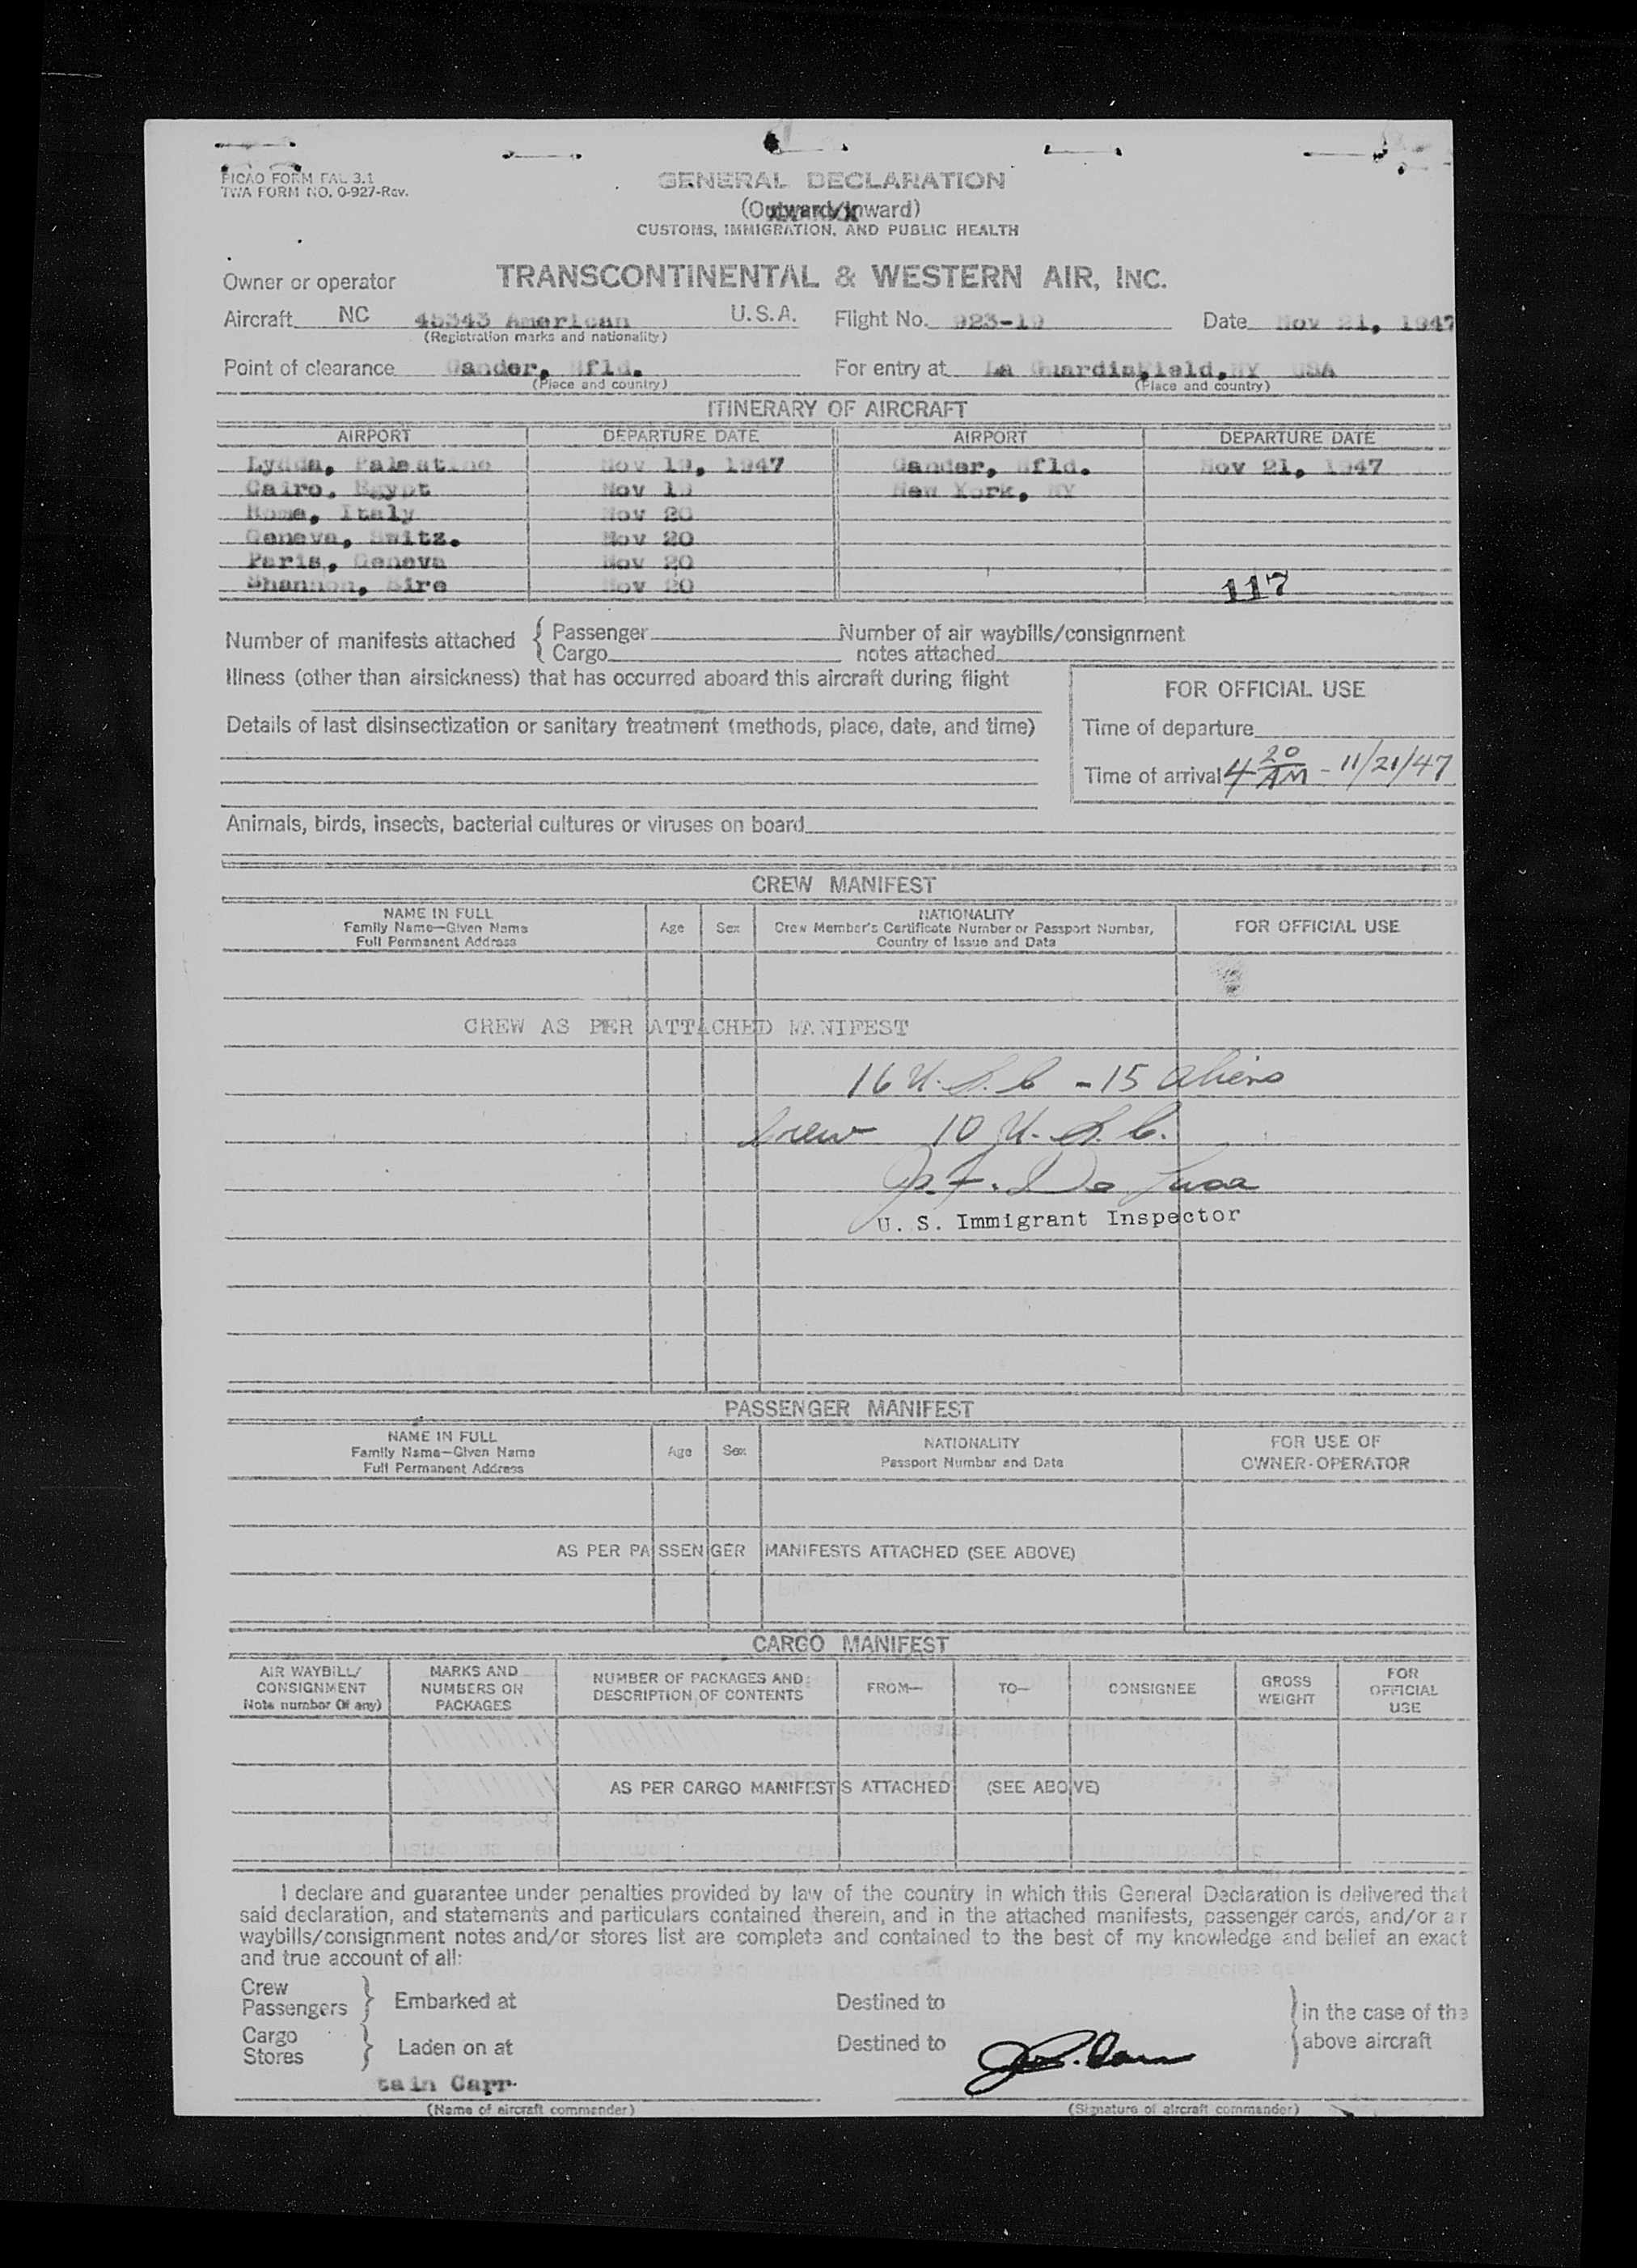 PICAO FORM FAL 3.1
TWA FORM NO. 0-927-Rev.
GENERAL DECLARATION
(Outward/Inward)
CUSTOMS, IMMIGRATION, AND PUBLIC HEALTH
Owner or operator TRANSCONTINENTAL & WESTERN AIR, INC.
Aircraft NC 45343 American U.S.A. Flight No. 923-19 Date Nov 21, 1947
(Registration marks and nationality)
Point of clearance Gander, Nfld. For entry at La GuardiaField,NY USA
(Place and country) (Place and country)
ITINERARY OF AIRCRAFT
AIRPORT DEPARTURE DATE AIRPORT DEPARTURE DATE
Lydda, Palestine Nov 19, 1947 Gander, Nfld. Nov 21, 1947
Cairo, Egypt Nov 19 New York, NY
Rome, Italy Nov 20
Geneva, Switz. Nov 20
Paris, Geneva Nov 20
Shannon, Eire Nov 20 117
Number of manifests attached { Passenger Number of air waybills/consignment
Cargo notes attached
Illness (other than airsickness) that has occurred aboard this aircraft during flight
FOR OFFICIAL USE
Details of last disinsectization or sanitary treatment (methods, place, date, and time)
Time of departure
Time of arrival 4 20 AM - 11/21/47
Animals, birds, insects, bacterial cultures or viruses on board
CREW MANIFEST
NAME IN FULL
Family Name—Given Name
Full Permanent Address
Age Sex
NATIONALITY
Crew Member's Certificate Number or Passport Number,
Country of Issue and Date
FOR OFFICIAL USE
CREW AS PER ATTACHED MANIFEST
16 U.S.C - 15 Aliens
Crew 10 U.S.C.
De Luca
U. S. Immigrant Inspector
PASSENGER MANIFEST
NAME IN FULL
Family Name—Given Name
Full Permanent Address
Age Sex
NATIONALITY
Passport Number and Date
FOR USE OF
OWNER-OPERATOR
AS PER PASSENGER MANIFESTS ATTACHED (SEE ABOVE)
CARGO MANIFEST
AIR WAYBILL/
CONSIGNMENT
Note number (if any)
MARKS AND
NUMBERS ON
PACKAGES
NUMBER OF PACKAGES AND
DESCRIPTION OF CONTENTS
FROM— TO— CONSIGNEE
GROSS
WEIGHT
FOR
OFFICIAL
USE
AS PER CARGO MANIFESTS ATTACHED (SEE ABOVE)
I declare and guarantee under penalties provided by law of the country in which this General Declaration is delivered that
said declaration, and statements and particulars contained therein, and in the attached manifests, passenger cards, and/or a r
waybills/consignment notes and/or stores list are complete and contained to the best of my knowledge and belief an exact
and true account of all:
Crew
Passengers } Embarked at Destined to } in the case of the
Cargo
Stores } Laden on at Destined to } above aircraft
tain Carr
(Name of aircraft commander) (Signature of aircraft commander)